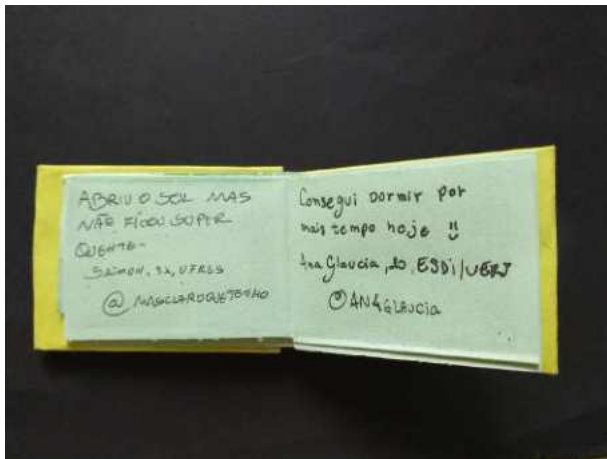 ABRIU O SOL MAS
NÃO FICOU SUPER
QUENTE-
SAIMON, 32, UFRGS
@MASCLAROQUETENHO
Consegui dormir por
mais tempo hoje !!
Ana Glaucia, 20, ESDI/UERJ
@ANAGLAUCIA